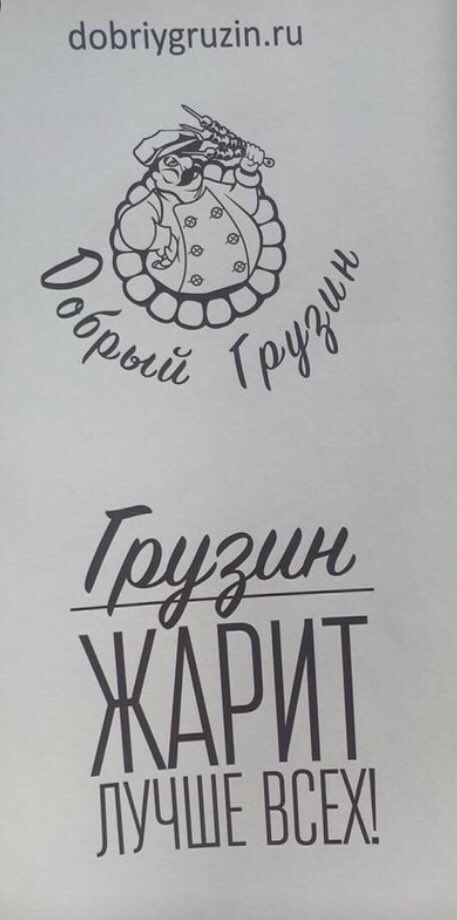 dobriygruzin.ru
Добрый Грузин
Грузин
ЖАРИТ
ЛУЧШЕ ВСЕХ!